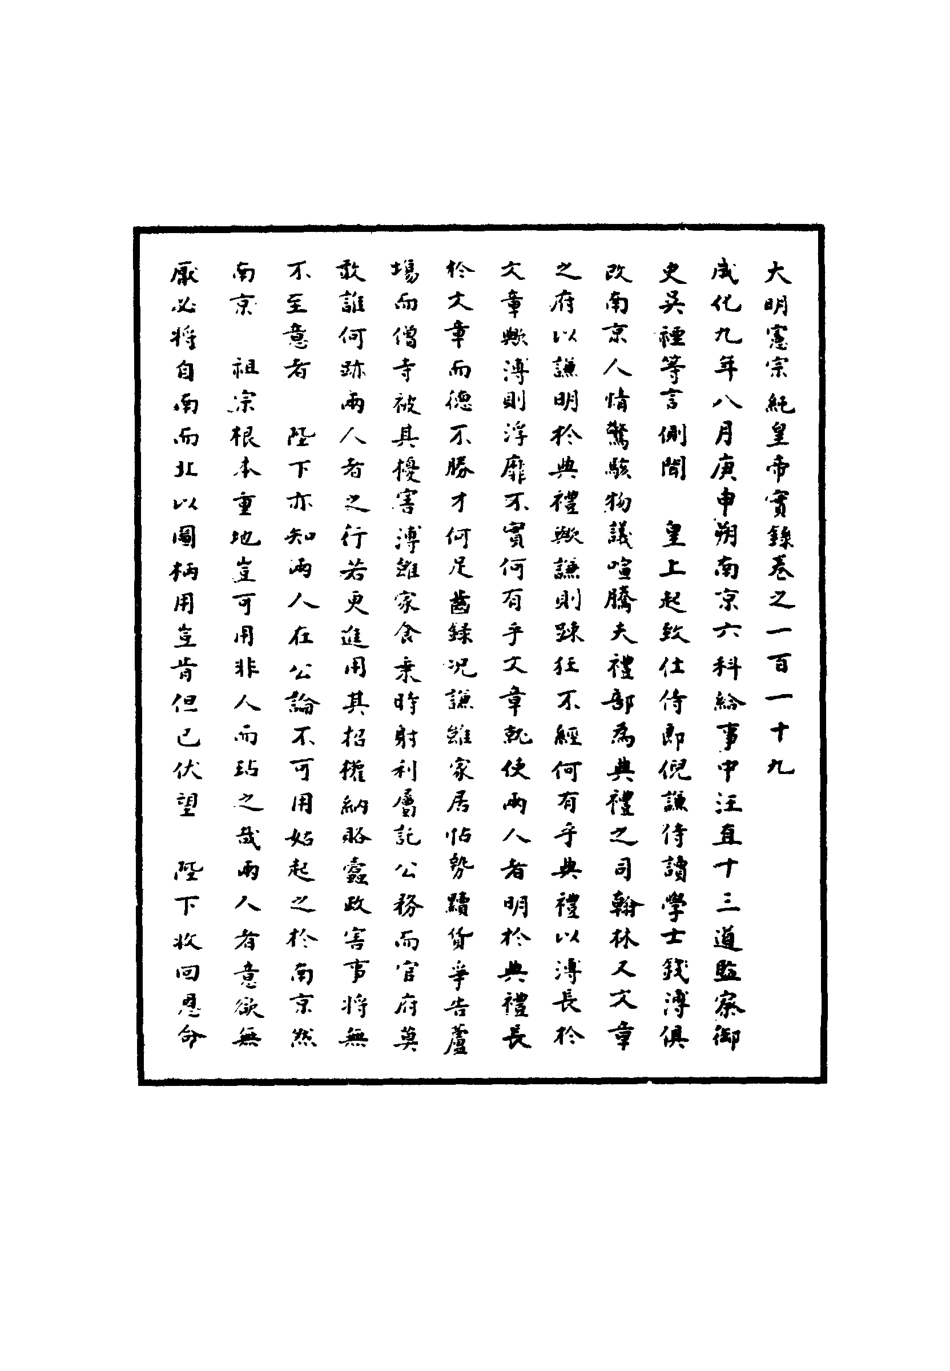 大明憲宗純皇帝實錄卷之一百一十九
成化九年八月庚申朔南京六科給事中汪直十三道監察御
史吳禋等言側聞　皇上起致仕侍郎倪謙侍讀學士錢溥俱
改南京人情驚駭物議喧騰夫禮部為典禮之司翰林又文章
之府以謙明於典禮歟謙則踈狂不經何有乎典禮以溥長於
文章歟溥則浮靡不實何有乎文章就使兩人者明於典禮長
於文章而德不勝才何足齒錄况謙雖家居怙勢黷貨爭告蘆
場而僧寺被其擾害溥雖家食乘時射利屬託公務而官府莫
敢誰何跡兩人者之行若更進用其招權納賂蠹政害事將無
不至意者　陛下亦知兩人在公論不可用姑起之於南京然
南京　祖宗根本重地豈可用非人而玷之哉兩人者意欲無
厭必將自南而北以圖柄用豈肯但已伏望　陛下收回恩命